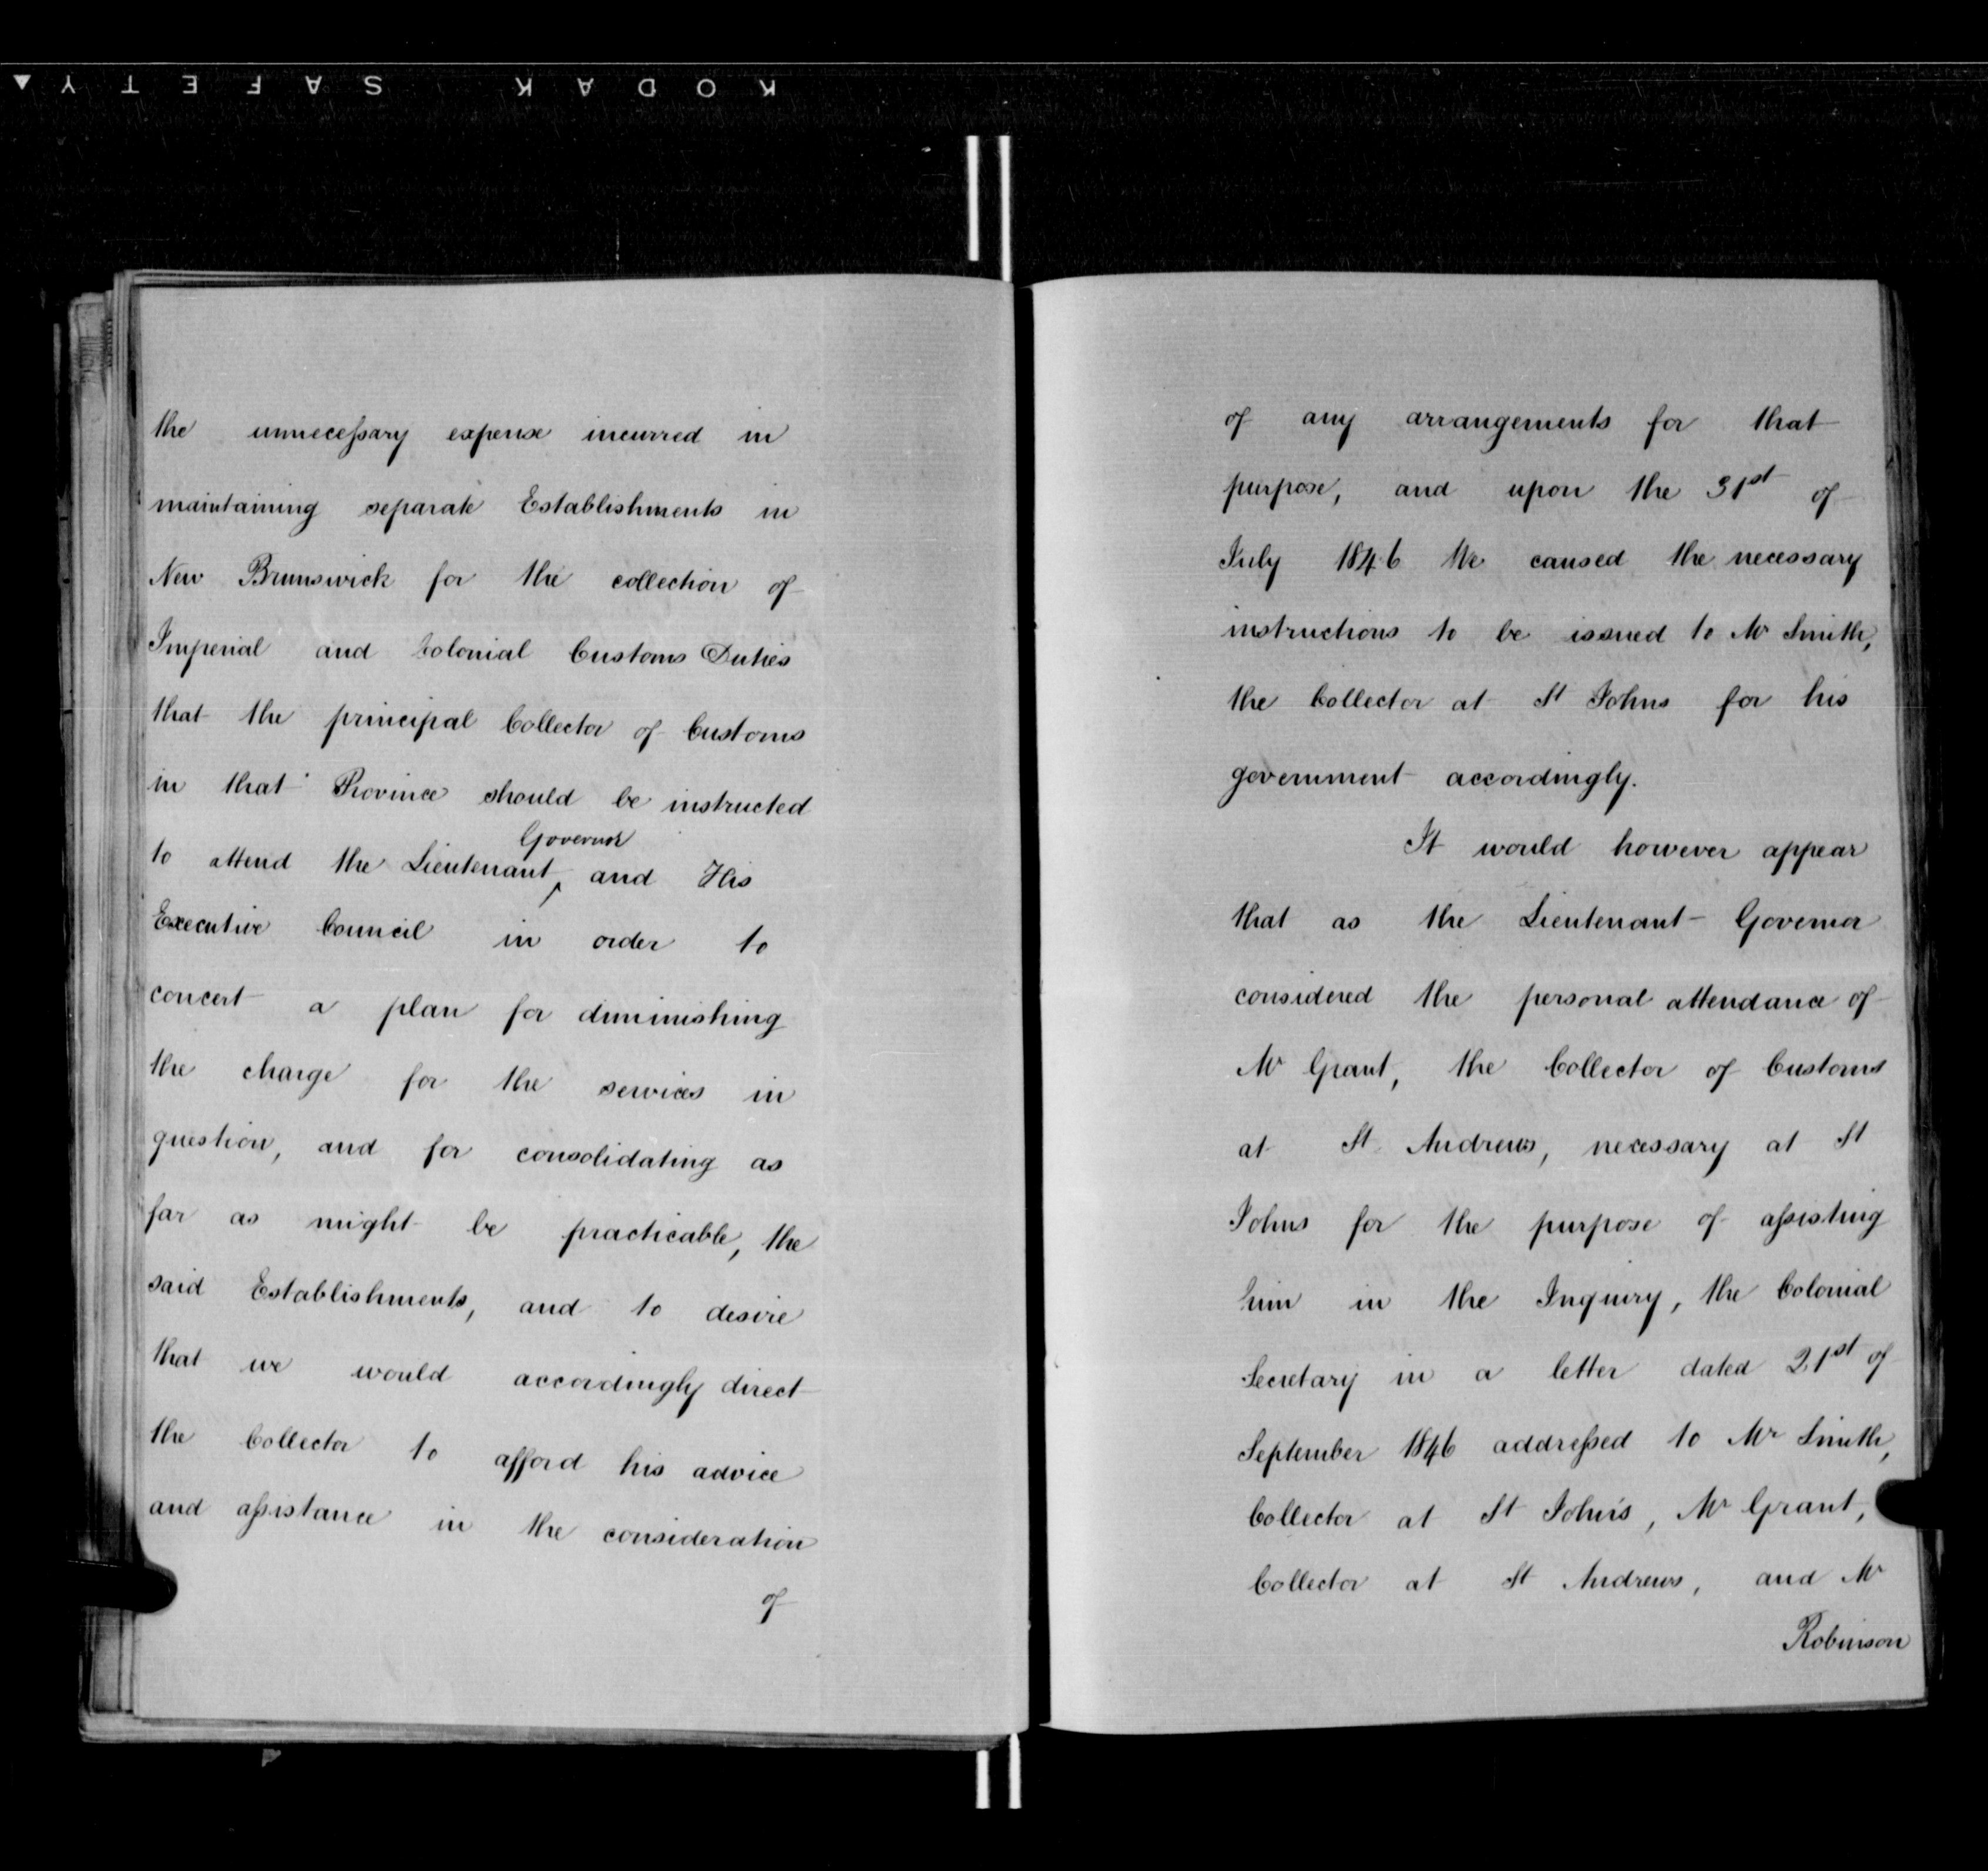 KODAK SAFETY
the unnecessary expense incurred in
maintaining separate Establishments in
New Brunswick for the collection of
Imperial and Colonial Customs Duties
that the principal Collector of Customs
in that Province should be instructed
to attend the Lieutenant Governor and His
Executive Council in order to
concert a plan for diminishing
the charge for the services in
question, and for consolidating as
far as might be practicable, the
said Establishments, and to desire
that we would accordingly direct
the Collector to afford his advice
and assistance in the consideration
of
of any arrangements for that
purpose, and upon the 31st of
July 1846 We caused the necessary
instructions to be issued to Mr Smith,
the Collector at St Johns for his
government accordingly.
It would however appear
that as the Lieutenant Governor
considered the personal attendance of
Mr Grant, the Collector of Customs
at St Andrews, necessary at St
Johns for the purpose of assisting
him in the Inquiry, the Colonial
Secretary in a letter dated 21st of
September 1846 addressed to Mr Smith,
Collector at St John's, Mr Grant,
Collector at St Andrews, and Mr
Robinson